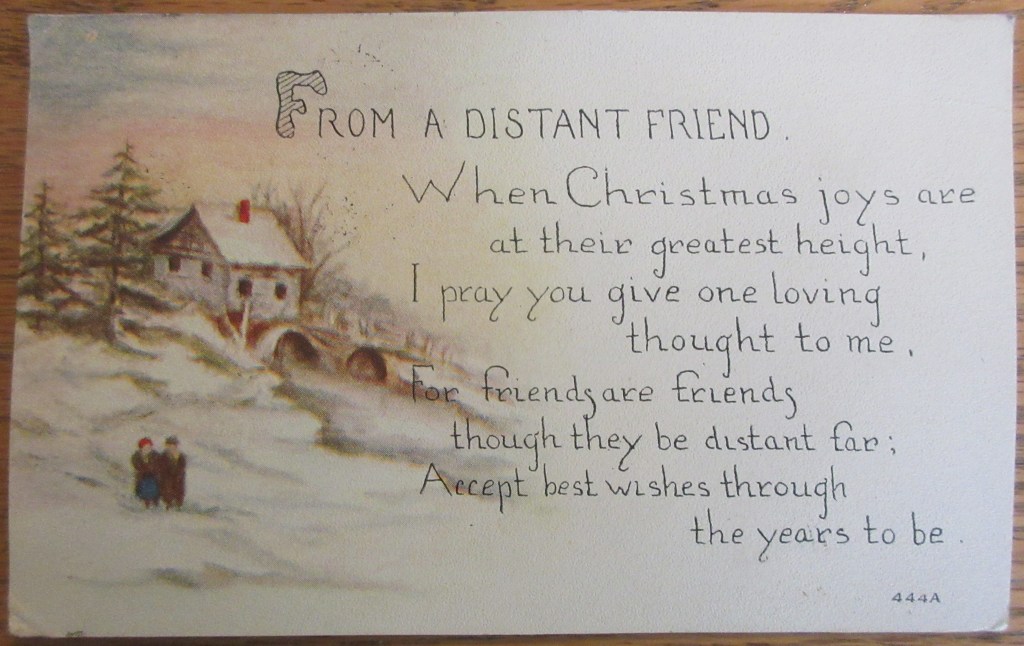 FROM A DISTANT FRIEND.
When Christmas joys are
at their greatest height,
I pray you give one loving
thought to me.
For friends are friends
though they be distant far;
Accept best wishes through
the years to be.
444A